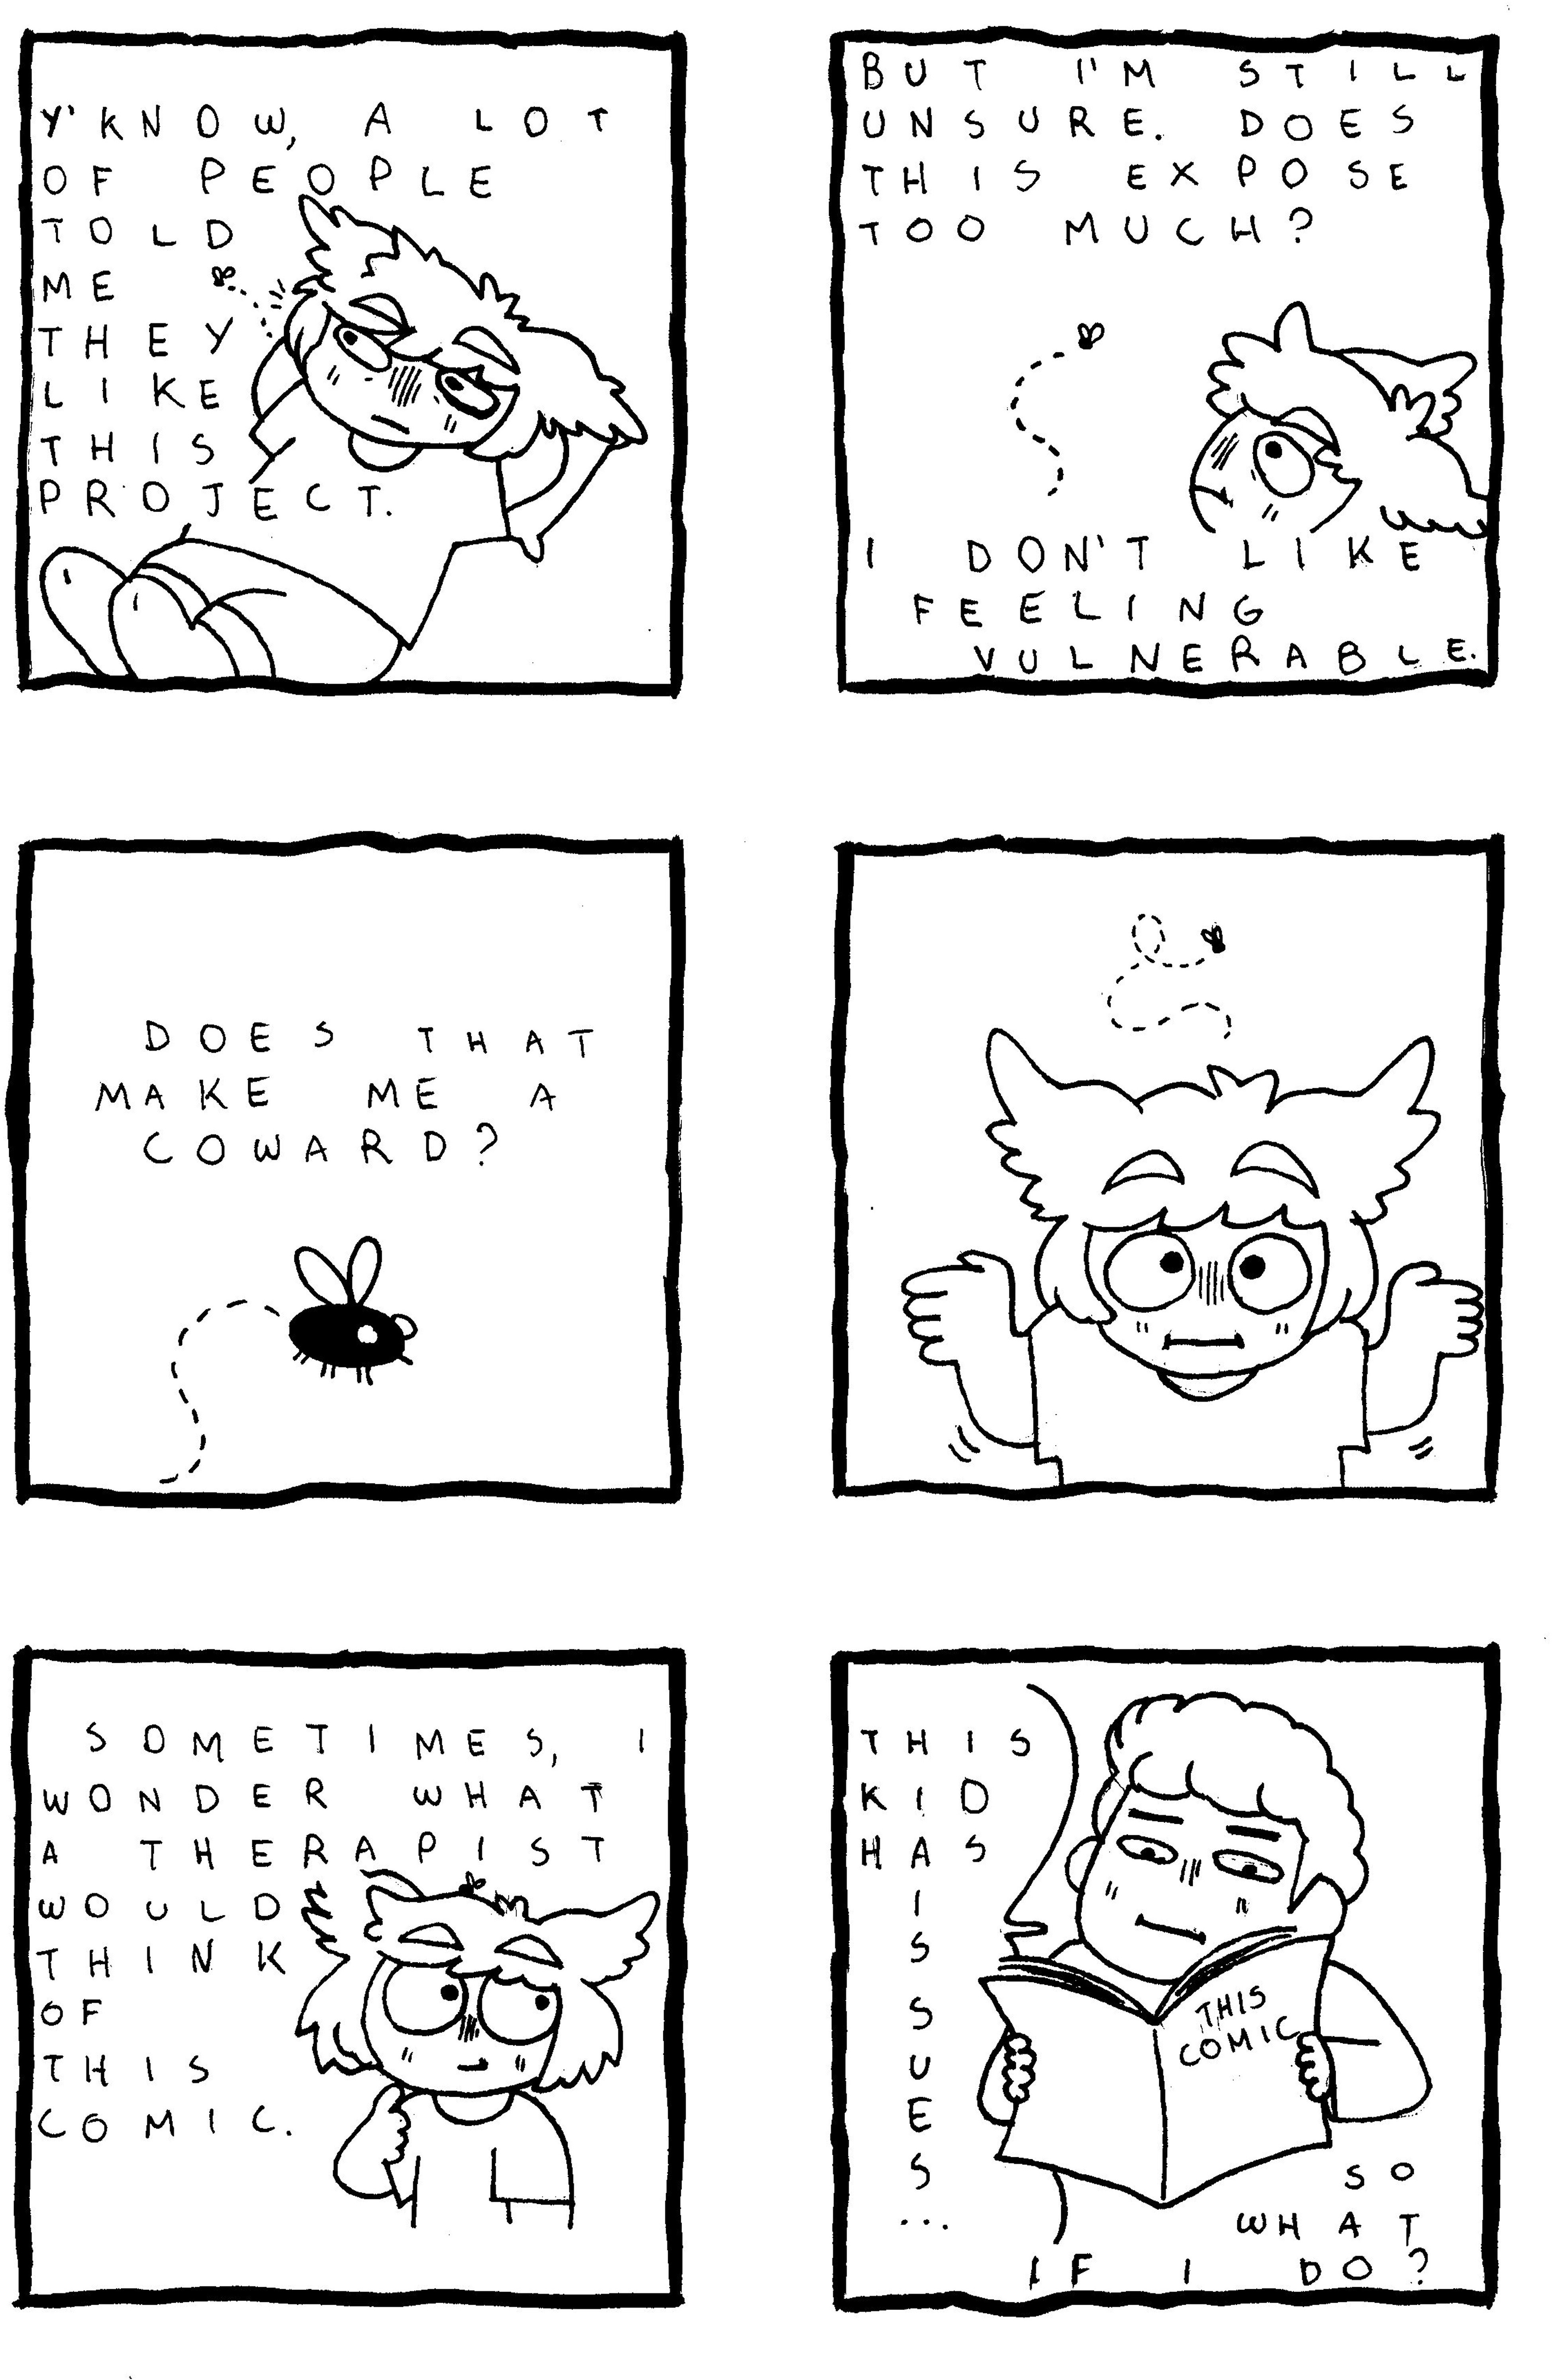 Y'KNOW, A LOT
OF PEOPLE
TOLD
ME
THEY
LIKE
THIS
PROJECT.
BUT I'M STILL
UNSURE. DOES
THIS EXPOSE
TOO MUCH?
I DON'T LIKE
FEELING
VULNERABLE.
DOES THAT
MAKE ME A
COWARD?
SOMETIMES, I
WONDER WHAT
A THERAPIST
WOULD
THINK
OF
THIS
COMIC.
THIS
KID
HAS
I
S
S
U
E
S
...
THIS
COMIC
SO
WHAT
IF I DO?